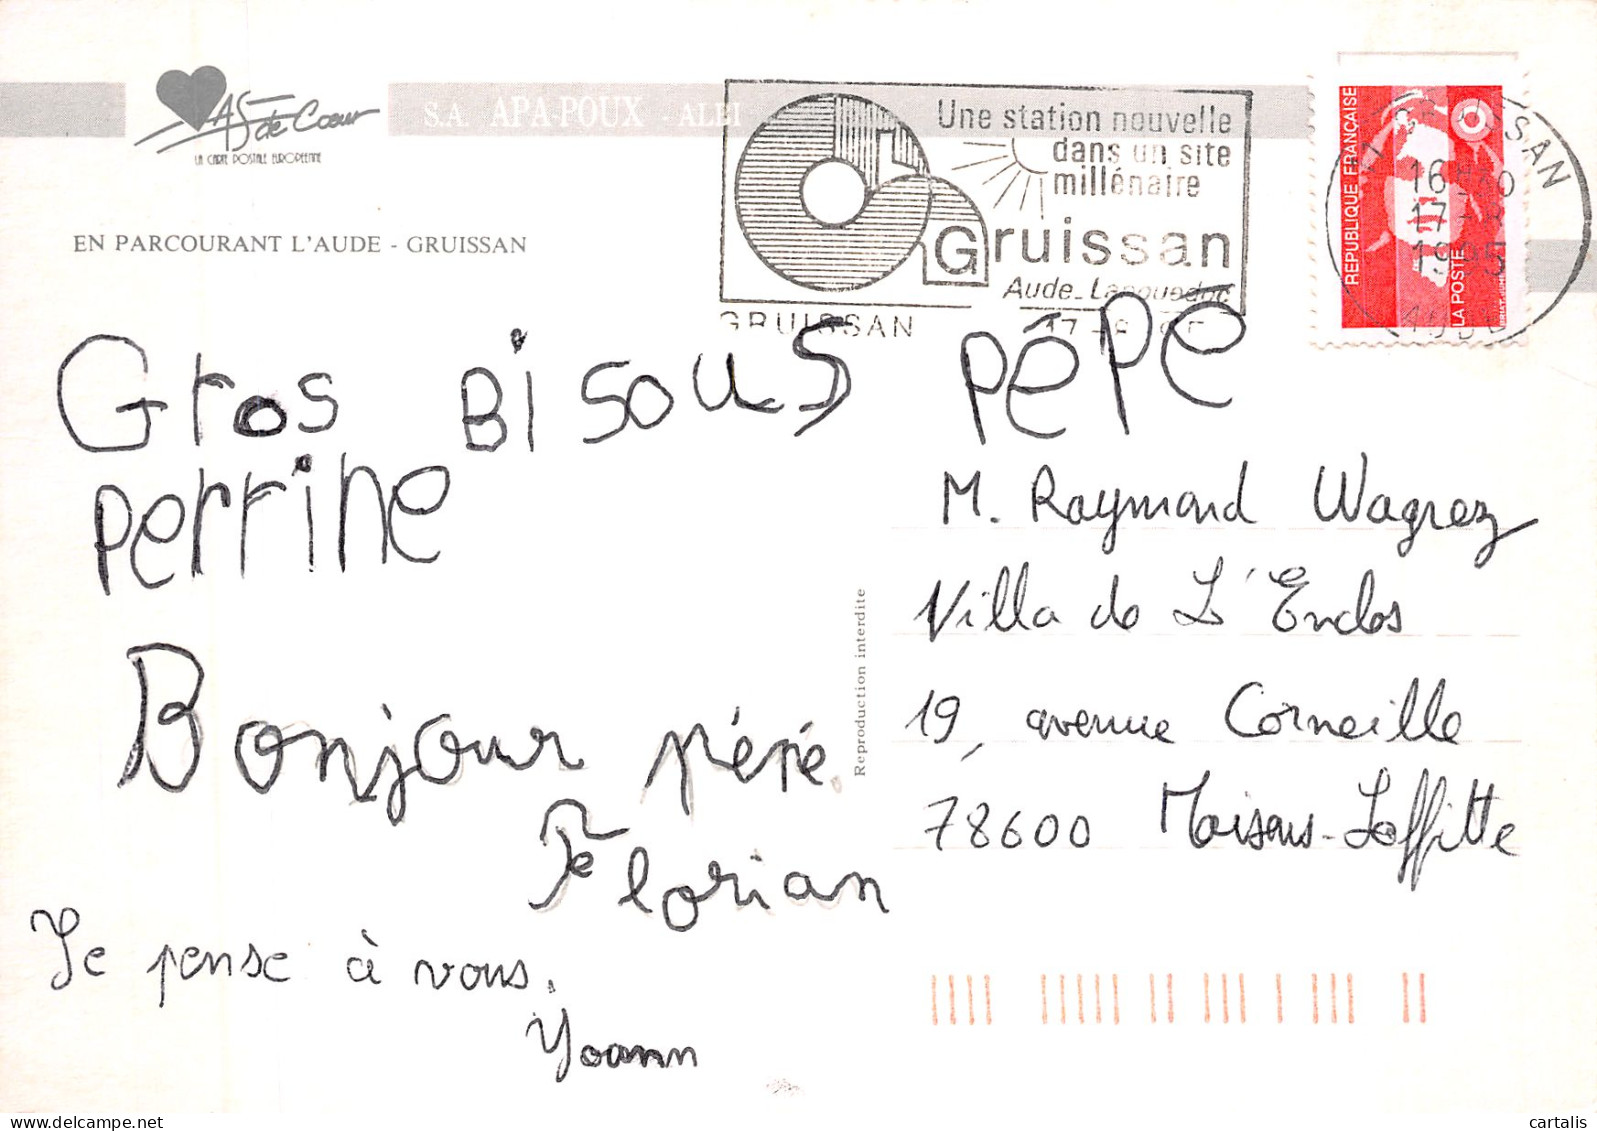 As de Coeur
LA CARTE POSTALE EUROPEENNE
S.A. APA-POUX - ALBI
EN PARCOURANT L'AUDE - GRUISSAN
Une station nouvelle
dans un site
millénaire
Gruissan
Aude-Languedoc
GRUISSAN
REPUBLIQUE FRANÇAISE
LA POSTE
1995
AUDE
Gros Bisous pépé
perrine
Bonjour pépé.
Florian
Je pense à vous.
Yoann
Reproduction interdite
M. Raymond Wagrez
Villa de L'Enclos
19, avenue Corneille
78600 Maisons-Laffitte
cartalis